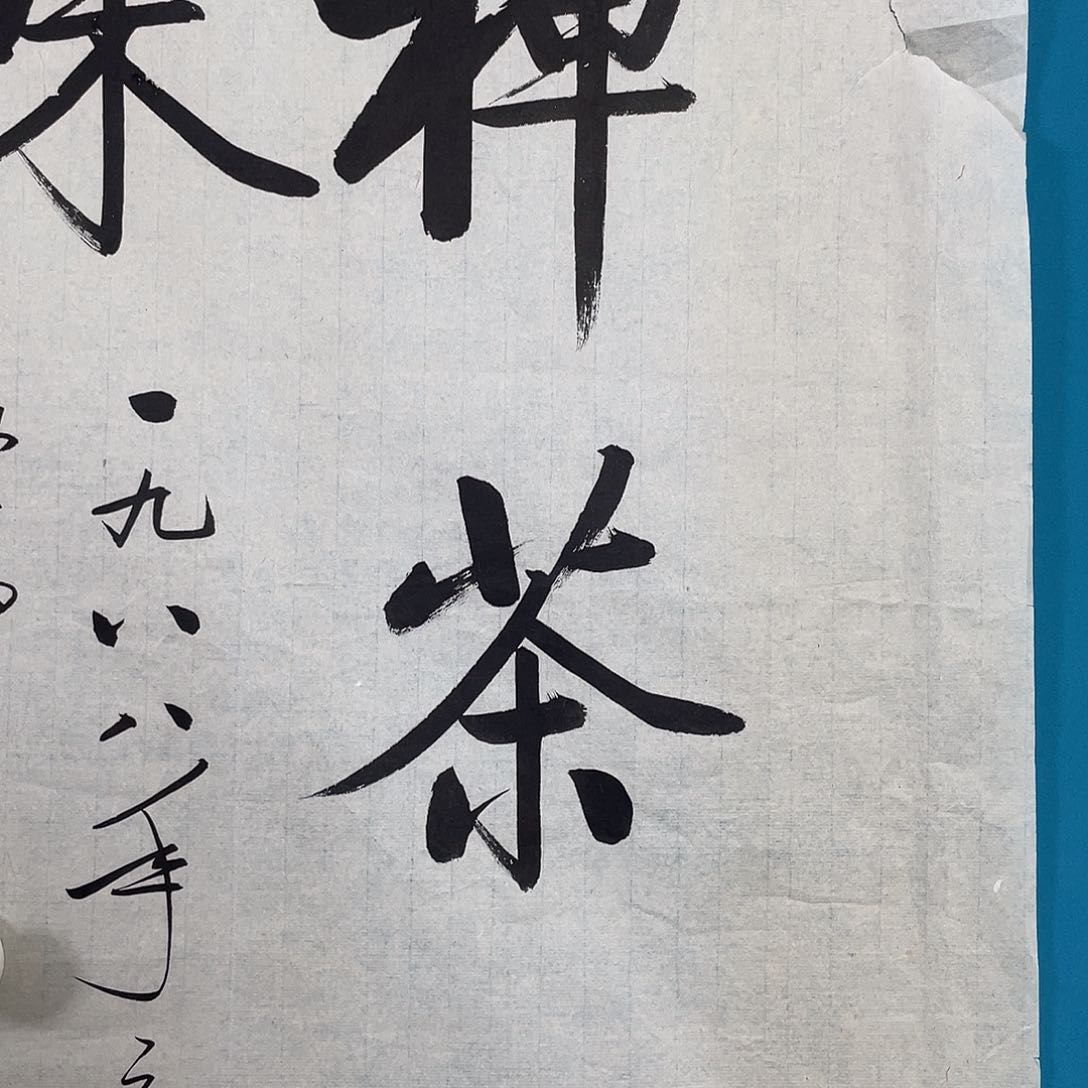 禅茶
味
一九八八年